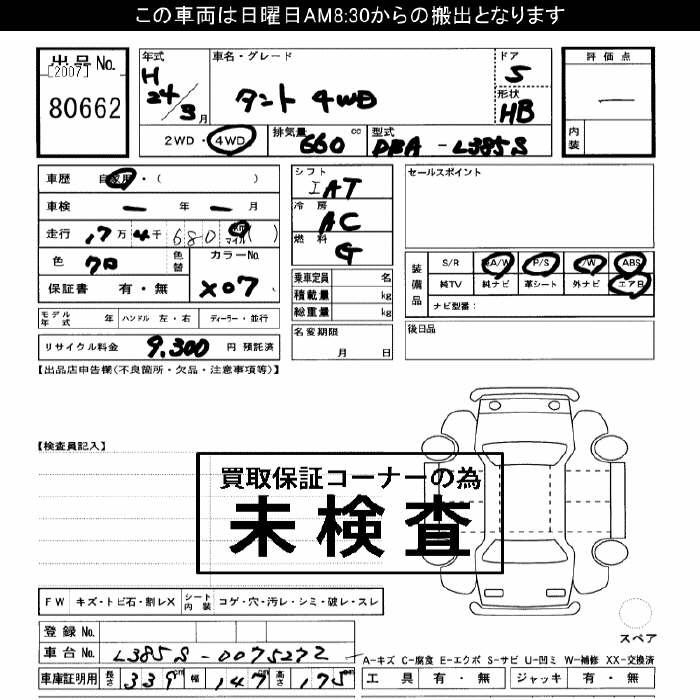 この車両は日曜日AM8:30からの搬出となります
出品No.
[2007]
80662
年式
H
24/3月
車名・グレード
タント 4WD
ドア
5
形状
HB
評価点
内装
2WD・4WD
排気量
660 cc
型式
DBA - L385S
車歴 自家用・( )
車検 ー 年 ー 月
走行 17万4千680
マイル
色 クロ
色替
カラーNo.
X07
保証書 有・無
モデル年式 年
ハンドル 左・右
ディーラー・並行
リサイクル料金 9,300 円 預託済
シフト
IAT
冷房
AC
燃料
G
乗車定員 名
積載量 kg
総重量 kg
名変期限
月 日
セールスポイント
装備品
S/R A/W P/S P/W ABS
純TV 純ナビ 革シート 外ナビ エアB
ナビ型番:
後日品
【出品店申告欄(不良箇所・欠品・注意事項等)】
【検査員記入】
買取保証コーナーの為
未検査
FW キズ・トビ石・割レX
シート内装 コゲ・穴・汚レ・シミ・破レ・スレ
スペア
登録No.
車台No. L385S-0075272
車庫証明用 長さ 339cm 幅 147cm 高さ 175cm
A-キズ C-腐食 E-エクボ S-サビ U-凹ミ W-補修 XX-交換済
工具 有・無 ジャッキ 有・無